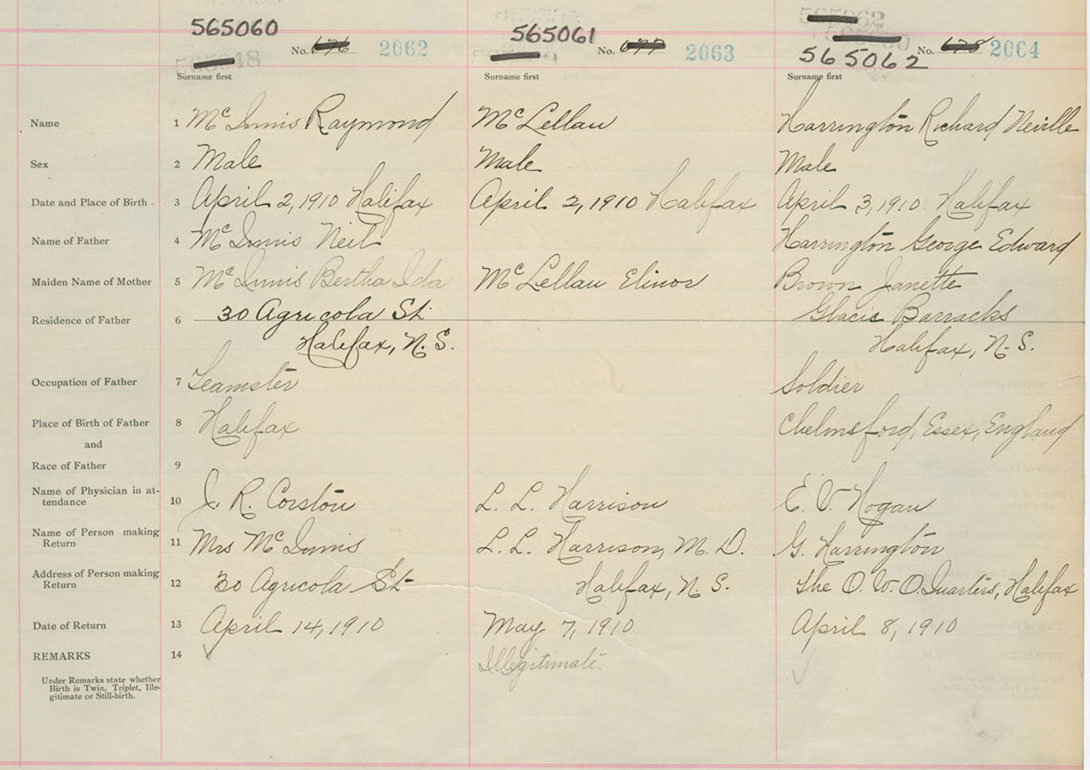 565060 565061 565062
No. 676 2062 No. 677 2063 No. 678 2064
Surname first Surname first Surname first
Name 1 McInnis Raymond McLellan Harrington Richard Neville
Sex 2 Male Male Male
Date and Place of Birth 3 April 2, 1910 Halifax April 2, 1910 Halifax April 3, 1910 Halifax
Name of Father 4 McInnis Neil Harrington George Edward
Maiden Name of Mother 5 McInnis Bertha Ida McLellan Elinor Brown Janette
Residence of Father 6 30 Agricola St Glacis Barracks
Halifax, N.S. Halifax, N.S.
Occupation of Father 7 Teamster Soldier
Place of Birth of Father 8 Halifax Chelmsford, Essex, England
and
Race of Father 9
Name of Physician in at-
tendance 10 J. R. Corston L. L. Harrison E. V. Hogan
Name of Person making
Return 11 Mrs McInnis L. L. Harrison, M.D. G. Harrington
Address of Person making
Return 12 30 Agricola St Halifax, N.S. The O.W.O. Quarters, Halifax
Date of Return 13 April 14, 1910 May 7, 1910 April 8, 1910
REMARKS 14 Illegitimate.
Under Remarks state whether
Birth is Twin, Triplet, Ille-
gitimate or Still-birth.